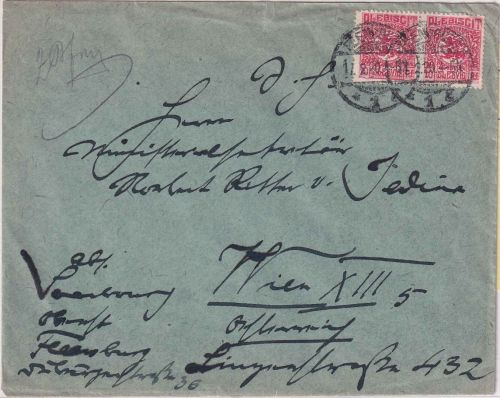 PLEBISCIT PLEBISCIT
Herrn
Ministerialsekretär
Norbert Ritter v. Jedina
Wien XIII 5
Österreich
Linzerstraße 432
abs.
Oberst
Flensburg
Duburgerstraße 36